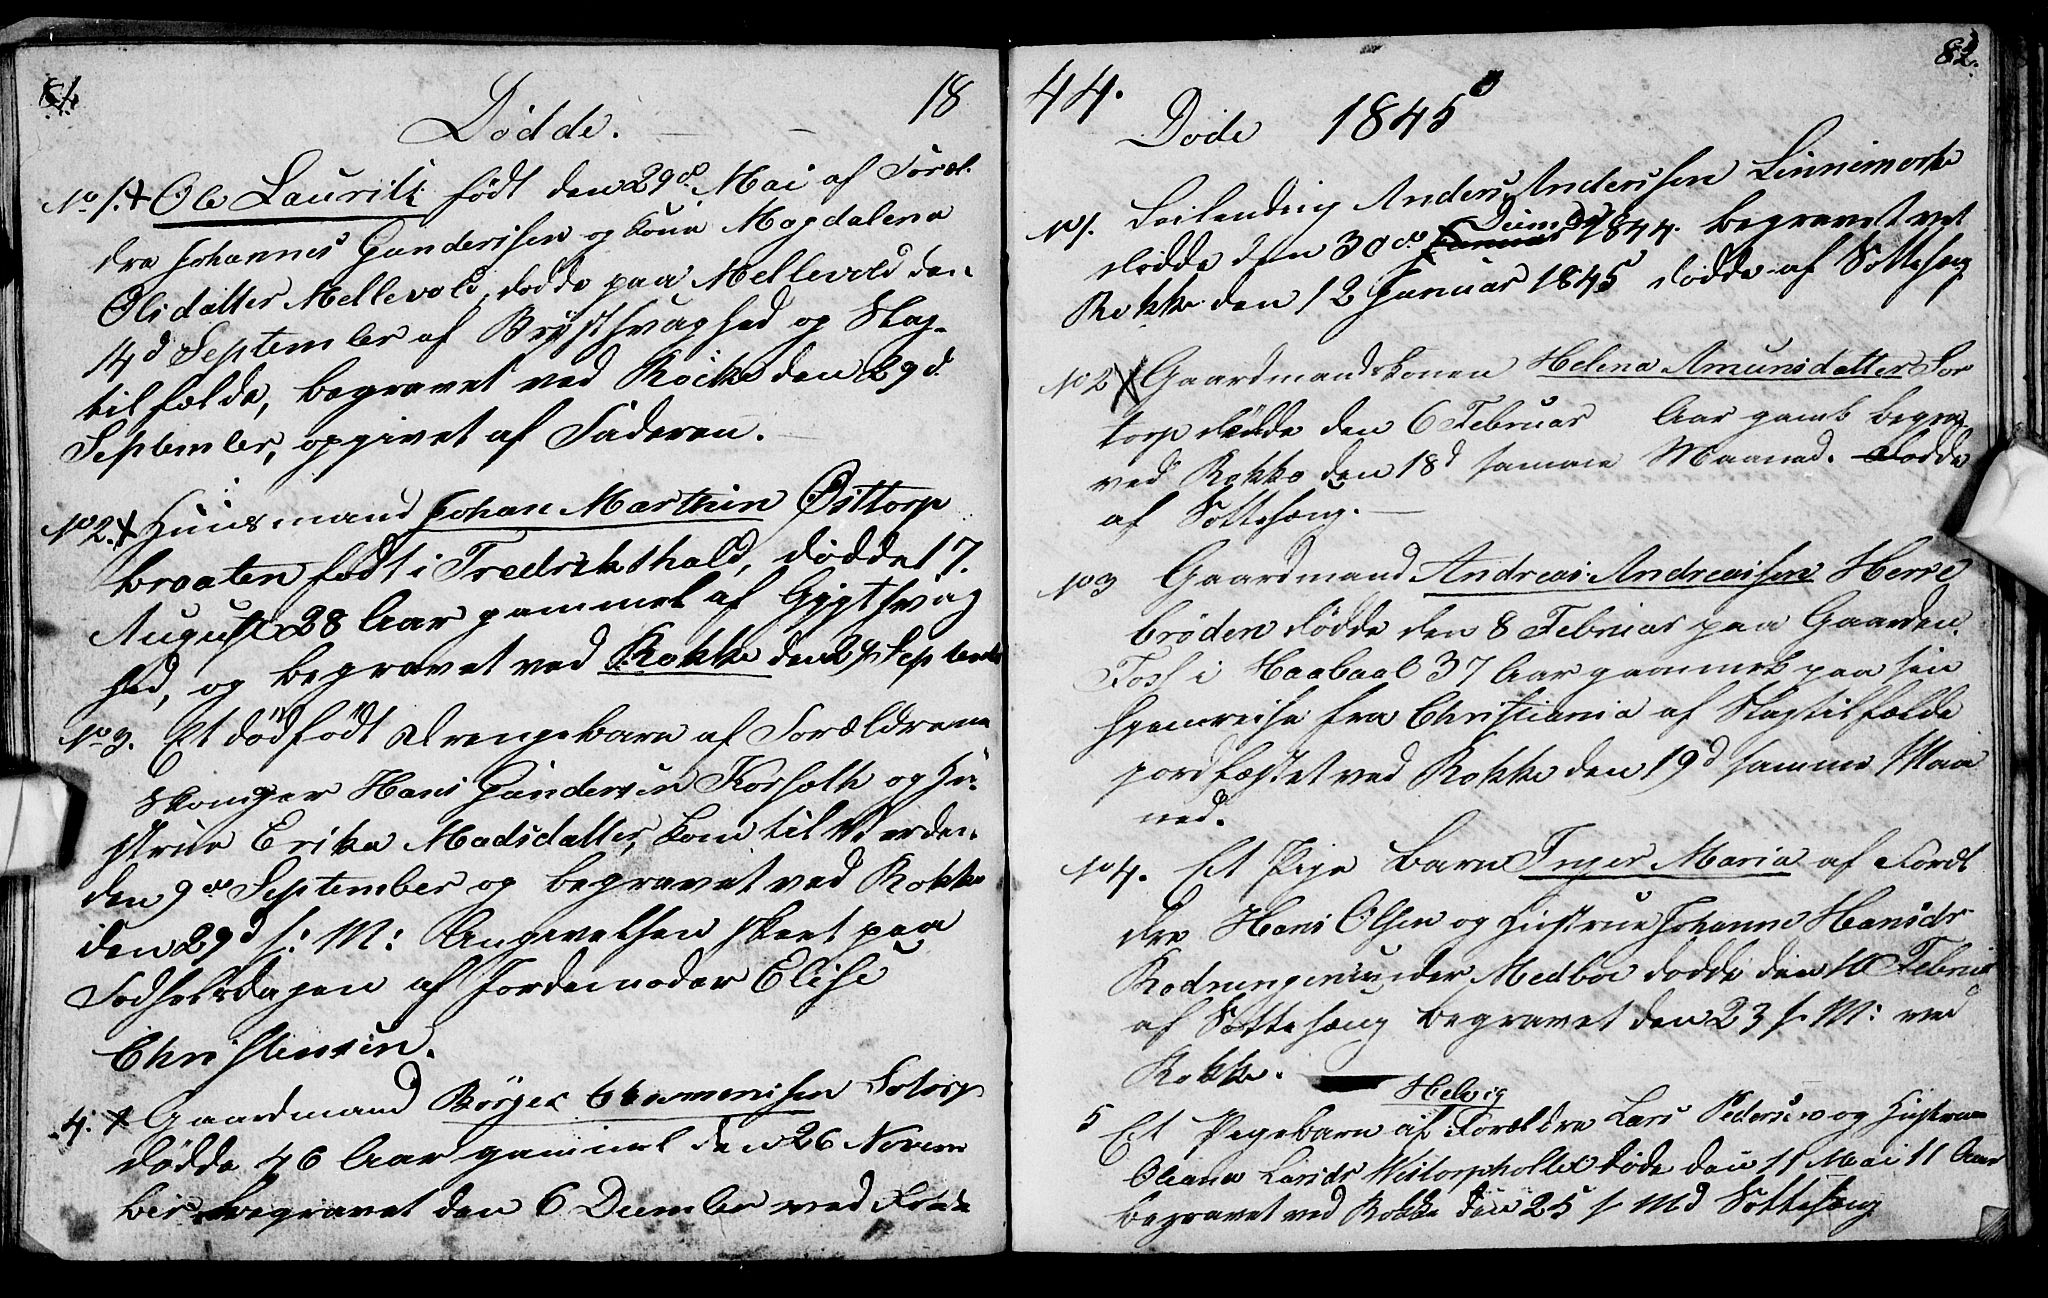 81.
Dødde.
18
No 1. + Ole Lauritz født den 29de Mai af Foræl-
dre Johannes Gundersen og Kone Magdalena
Olsdatter Mellevold, dødde paa Mellevold den
14d September af Brystsvaghed og Slag-
tilfælde, begravet ved Rocke den 29d
September, opgivet af Faderen.
No 2. + Huusmand Johan Marthin Østtorp
braaten født i Fredrikshald, dødde 17.
August 28 Aar gammel af Gygtsvag
hed, og begravet ved Rokke den 29 September
No 3. Et dødfødt Drengebarn af Forældrene
Hans Gundersen Korsolth og Hu-
strue Erika Madsdatter, kom til Verden
den 9de September og begravet ved Rokke
den 29d s: M: Angivelsen skeet paa
Fødselsdagen af Jordemoder Elise
Christensen.
4. + Gaardmand Børger Clemmensen Sotorp
dødde 46 Aar gammel den 26 Novem
ber begravet den 6 December ved Rokke
44.
82.
Døde 1845
No 1. Leilending Anders Andersen Linnemork
dødde den 30de Januar December 1844. begravet vet
Rokke den 12 Januar 1845 dødde af Sotteseng
No 2 + Gaardmandskonen Helena Amunsdatter Sor
torp dødde den 6 Februar Aar gamb begra
ved Rokke den 18d samme Maaned. dødde
af Sottesæng.
No 3 Gaardmand Andreas Andreassen Herre
brøden dødde den 8 Februar paa Gaarden
Foss i Haabaal 37 Aar gammel paa sin
hjemreise fra Christiania af Slagtilfælde
jordfæstet ved Rokke den 19d samme Maa
ned.
No 4. Et Pige Barn Inger Maria af Forel
dre Hans Olsen og Hustrue Johanne Hansdr
Rodningen under Medboe dødde den 10 Februar
af Sottesæng begravet den 23 s. M: ved
Rokke.
Helvig
5 Et Pigebarn af Forældre Lars Pedersen og Hustrue
Oleana Larsdr Wistorpholtet døde den 11 Mai 11 Aar
begravet ved Rokke den 25 s. Md Sottesæng